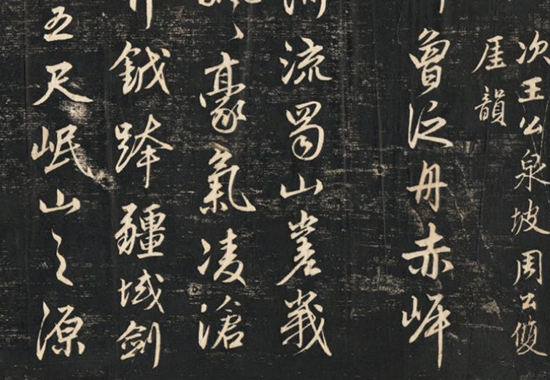 次王公泉坡周公雙
厓韻
曾泛舟赤岸
流蜀山
豪氣凌滄
鉞疆域劍
五尺岷山之源